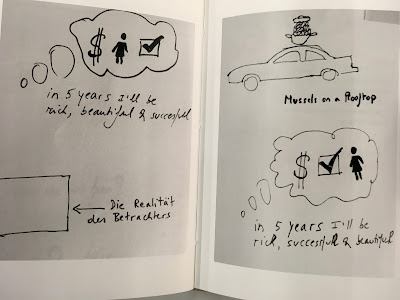 $
in 5 years I'll be
rich, beautiful & succesfull
← Die Realität
des Betrachters
Mussels on a Rooftop
$
in 5 years I'll be
rich, successful & beautiful